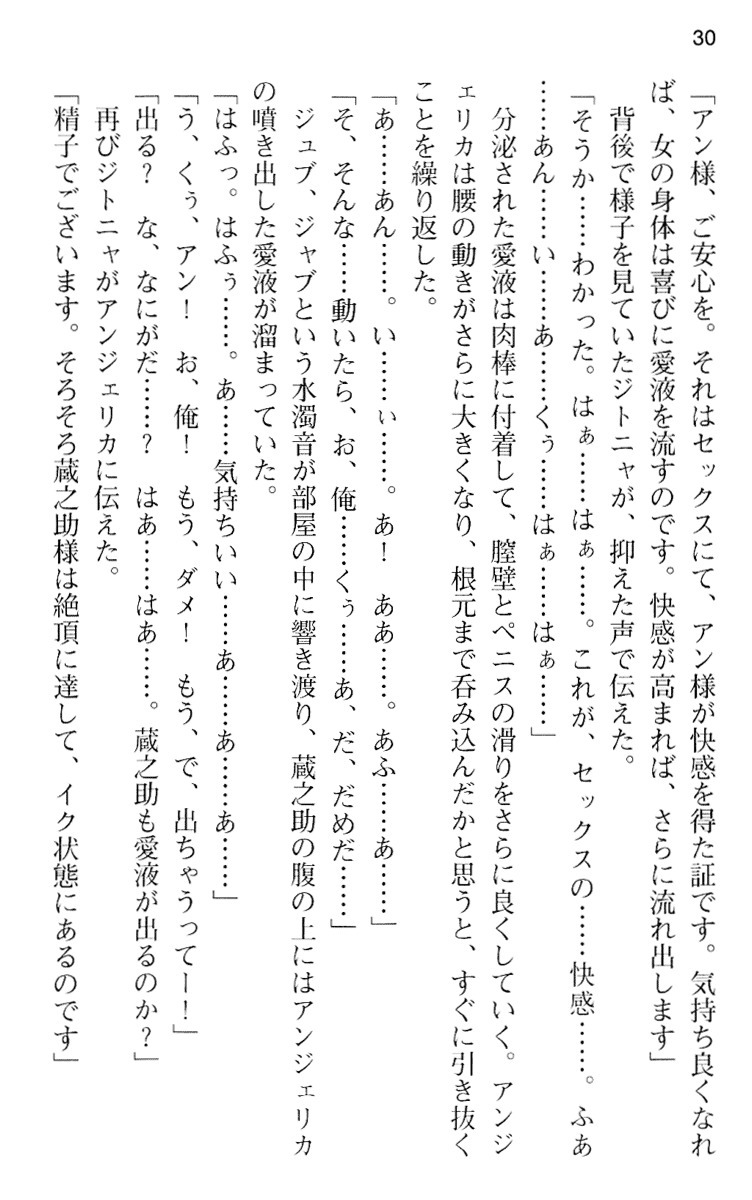 30
「アン様、ご安心を。それはセックスにて、アン様が快感を得た証です。気持ち良くなれ
ば、女の身体は喜びに愛液を流すのです。快感が高まれば、さらに流れ出します」
背後で様子を見ていたジトニャが、抑えた声で伝えた。
「そうか……わかった。はぁ……はぁ……。これが、セックスの……快感……。ふあ
……あん……い……あ……くぅ……はぁ……はぁ……」
分泌された愛液は肉棒に付着して、膣壁とペニスの滑りをさらに良くしていく。アンジ
ェリカは腰の動きがさらに大きくなり、根元まで呑み込んだかと思うと、すぐに引き抜く
ことを繰り返した。
「あ……あん……。い……ぃ……。あ！　ああ……。あふ……あ……」
「そ、そんな……動いたら、お、俺……くぅ……あ、だ、だめだ……」
ジュブ、ジャブという水濁音が部屋の中に響き渡り、蔵之助の腹の上にはアンジェリカ
の噴き出した愛液が溜まっていた。
「はふっ。はふぅ……。あ……気持ちいい……あ……あ……あ……」
「う、くぅ、アン！　お、俺！　もう、ダメ！　もう、で、出ちゃうってー！」
「出る？　な、なにがだ……？　はあ……はあ……。蔵之助も愛液が出るのか？」
再びジトニャがアンジェリカに伝えた。
「精子でございます。そろそろ蔵之助様は絶頂に達して、イク状態にあるのです」